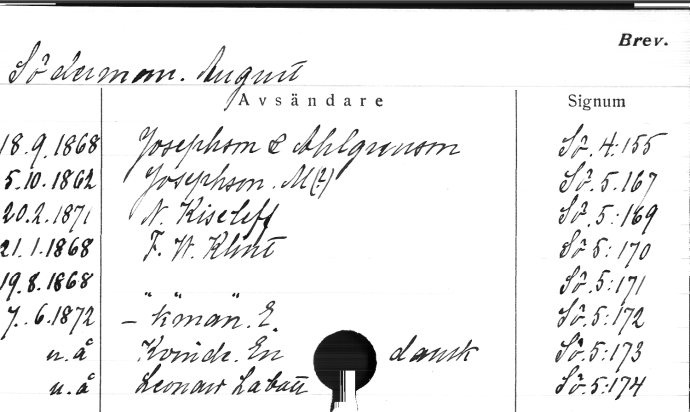 Brev.
Söderman. August
Avsändare Signum
18.9.1868 Josephson & Ahlgrenson Sö. 4:155
5.10.1862 Josephson. M(?) Sö. 5.167
20.2.1871 N. Kiseleff Sö. 5:169
21.1.1868 F. W. Klint Sö 5:170
19.8.1868 " " " Sö. 5:171
7.6.1872 – kman. E. Sö. 5:172
u.å Kvinde. En dansk Sö. 5:173
u.å Leonard Labatt Sö. 5:174